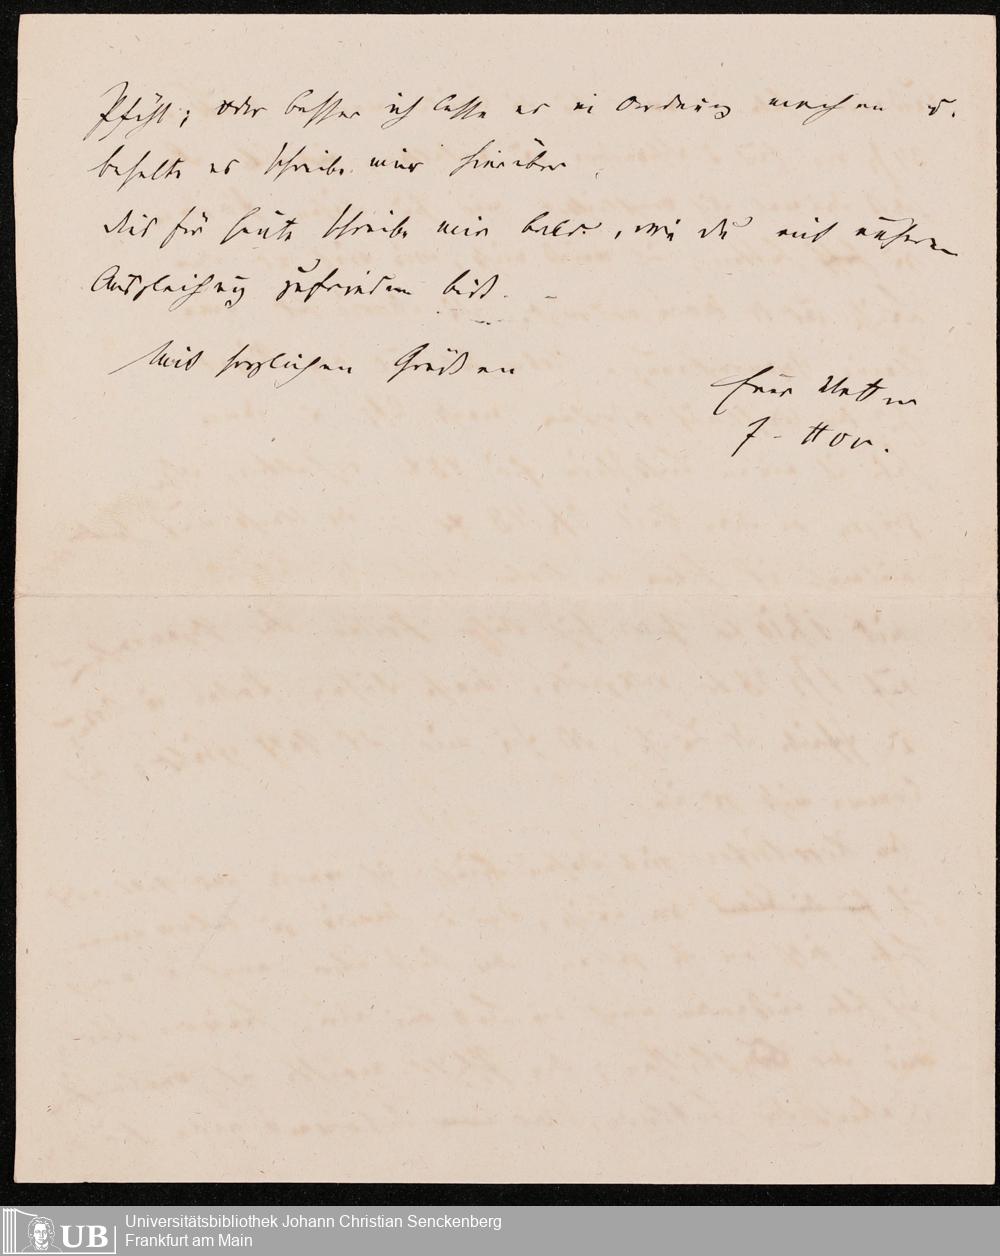 schickst; oder besser ich lasse es in Ordnung machen u.
behalte es schreibe mir hierüber.
Dies für heute schreibe mir bald, wie du mit unserer
Ausgleichung zufrieden bist.
Mit herzlichen Grüßen
Euer Vetter
F. Hov.
UB
Universitätsbibliothek Johann Christian Senckenberg
Frankfurt am Main